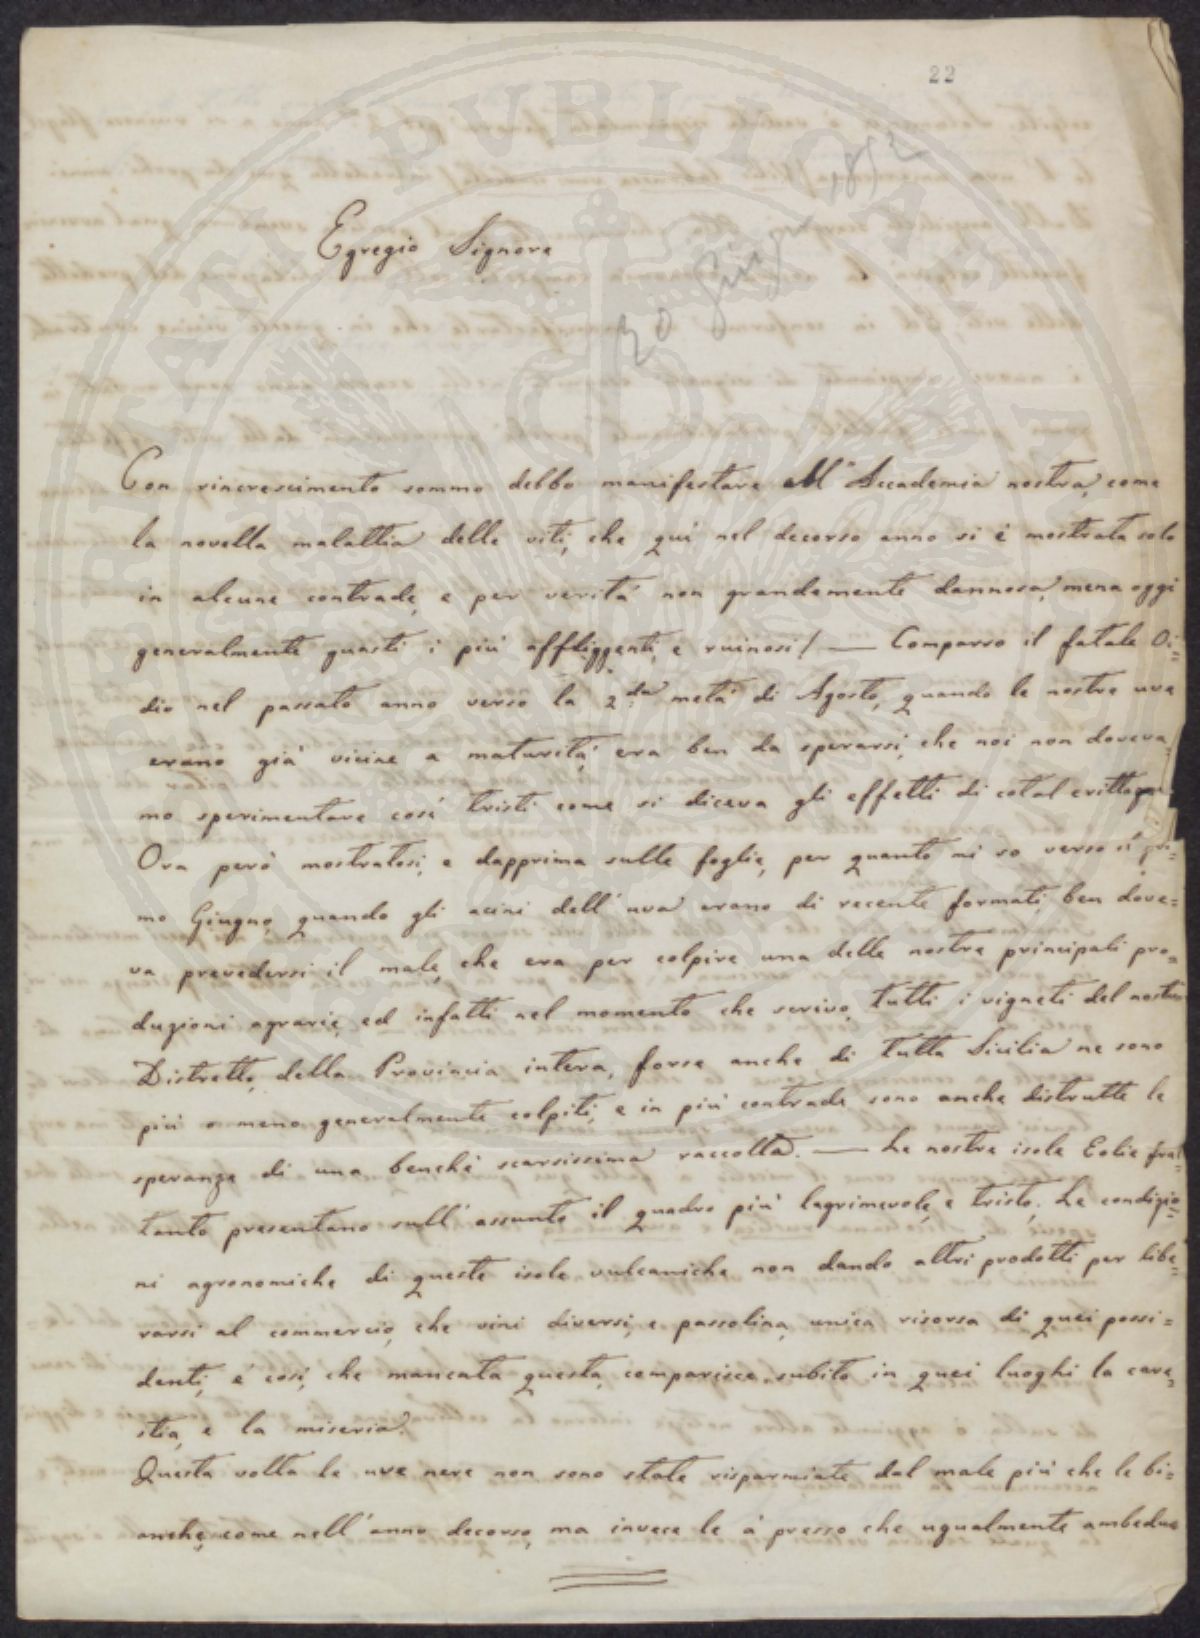 22
30 Giugno 1852
Egregio Signore
Con rincrescimento sommo debbo manifestare all'Accademia nostra, come
la novella malattia delle viti, che quì nel decorso anno si è mostrata solo
in alcune contrade, e per verità non grandemente dannosa, mena oggi
generalmente guasti i più affliggenti, e ruinosi! — Comparso il fatale Oi=
dio nel passato anno verso la 2.da metà di Agosto, quando le nostre uve
erano già vicine a maturità, era ben da sperarsi, che noi non doveva=
mo sperimentare così tristi come si diceva gli effetti di cotal crittogama
Ora però mostratosi, e dapprima sulle foglie, per quanto mi so verso il pri=
mo Giugno, quando gli acini dell'uva erano di recente formati, ben dove=
va prevedersi il male, che era per colpire una delle nostre principali pro=
duzioni agrarie, ed infatti nel momento che scrivo, tutti i vigneti del nostro
Distretto, della Provincia intera, forse anche di tutta Sicilia ne sono
più o meno generalmente colpiti, e in più contrade sono anche distrutte le
speranze di una benchè scarsissima raccolta. — Le nostre isole Eolie frat=
tanto presentano sull'assunto il quadro più lagrimevole, e tristo. Le condizio=
ni agronomiche di queste isole vulcaniche non dando altri prodotti per libe=
rarsi al commercio, che vini diversi, e passolina, unica risorsa di quei possi=
denti, è così, che mancata questa, comparisce subito in quei luoghi la care=
stia, e la miseria.
Questa volta le uve nere non sono state risparmiate dal male più che le bi=
anche, come nell'anno decorso, ma invece le à presso che ugualmente ambedue